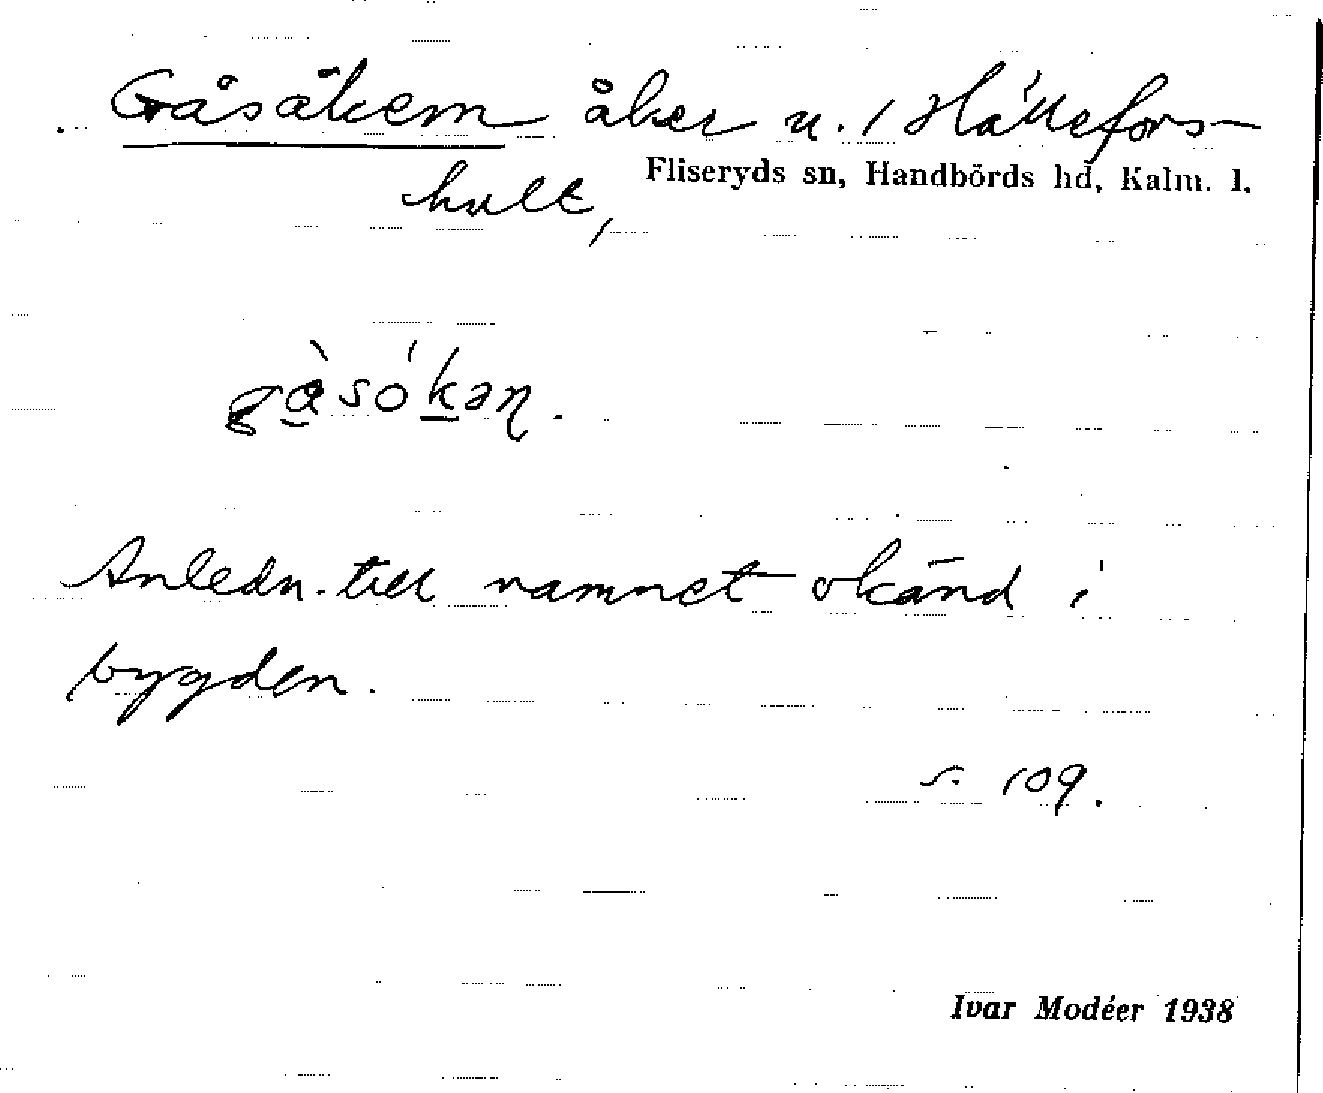 Gåsåkern åker u. / Hällefors-
Fliseryds sn, Handbörds hd, Kalm. l.
hult,
Anledn. till namnet okänd i
bygden.
s. 109.
Ivar Modéer 1938